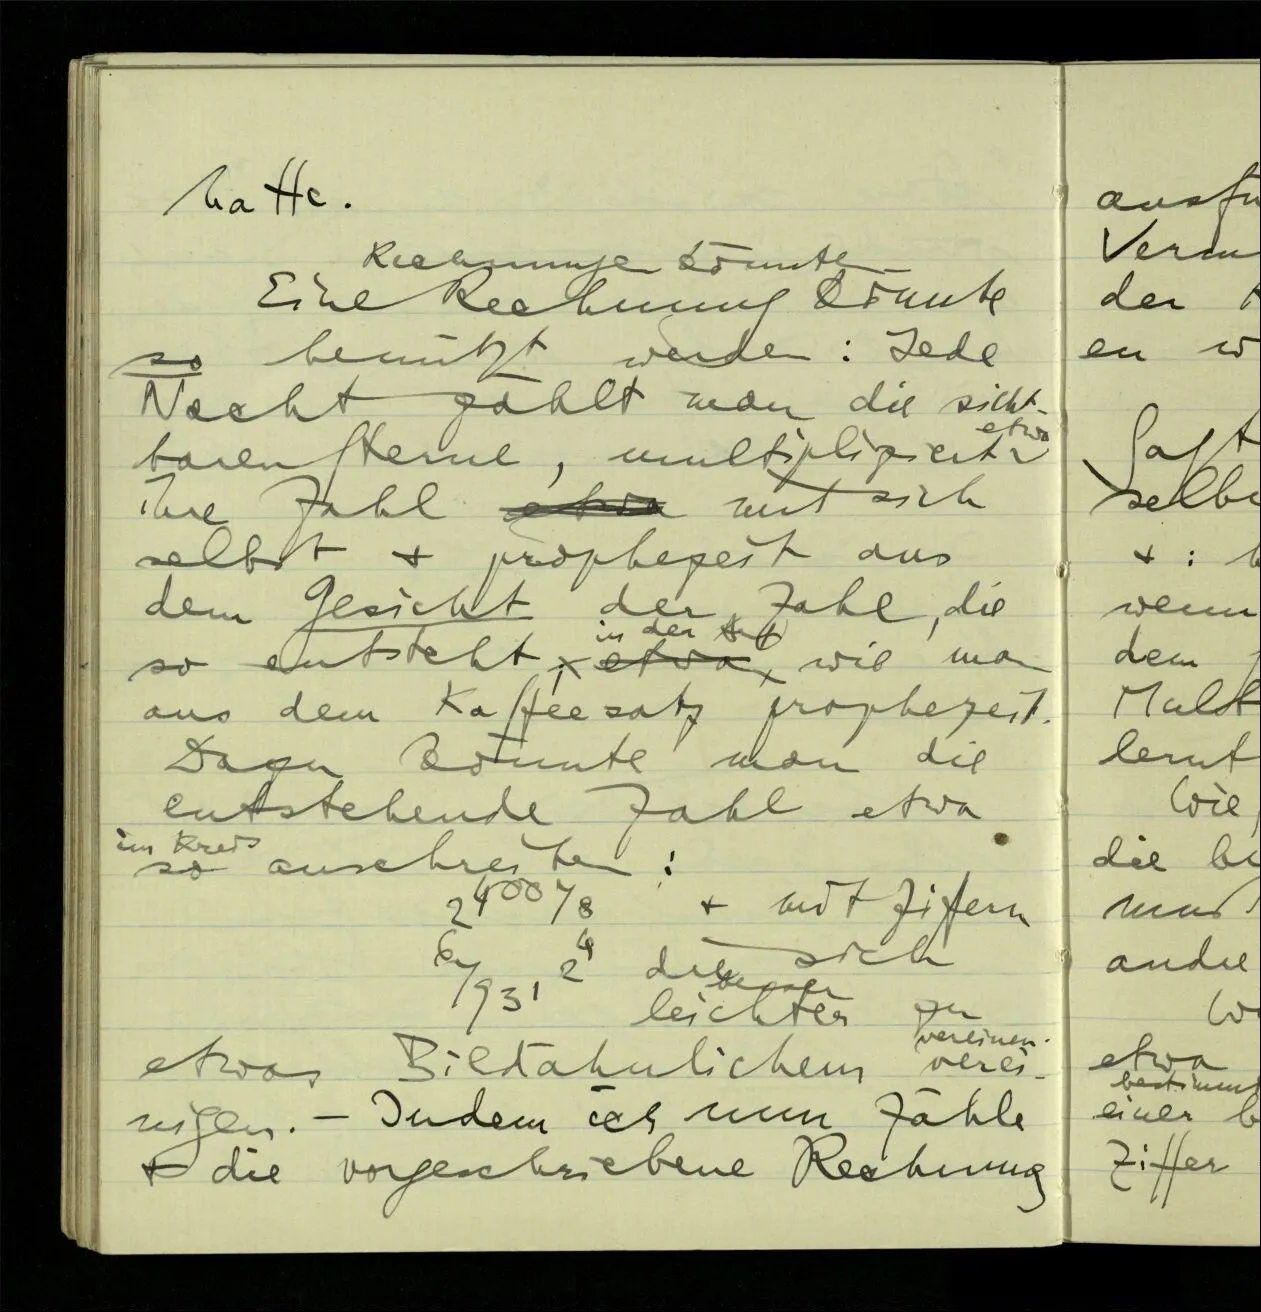 hatte.
Rechnungen könnten
Eine Rechnung könnte
so benützt werden: Jede
Nacht zählt man die sicht-
etwa
baren Sterne, multipliziert
ihre Zahl etwa mit sich
selbst + prophezeit aus
dem Gesicht der Zahl, die
in der Art
so entsteht, etwa, wie man
aus dem Kaffeesatz prophezeit.
Dazu könnte man die
entstehende Zahl etwa
im Kreis
so anschreiben:
240078 + mit Ziffern
24 die sich
931
besser
leichter zu
vereinen.
etwas Bildähnlichem verei-
nigen. – Indem ich nun zähle
+ die vorgeschriebene Rechnung
ausfü
Verm
der
en w
Saft
selbe
+ :
wenn
dem
Mult
lernt
Wie,
die
mus
ande
etwa
bestimmt
einer b
Ziffer